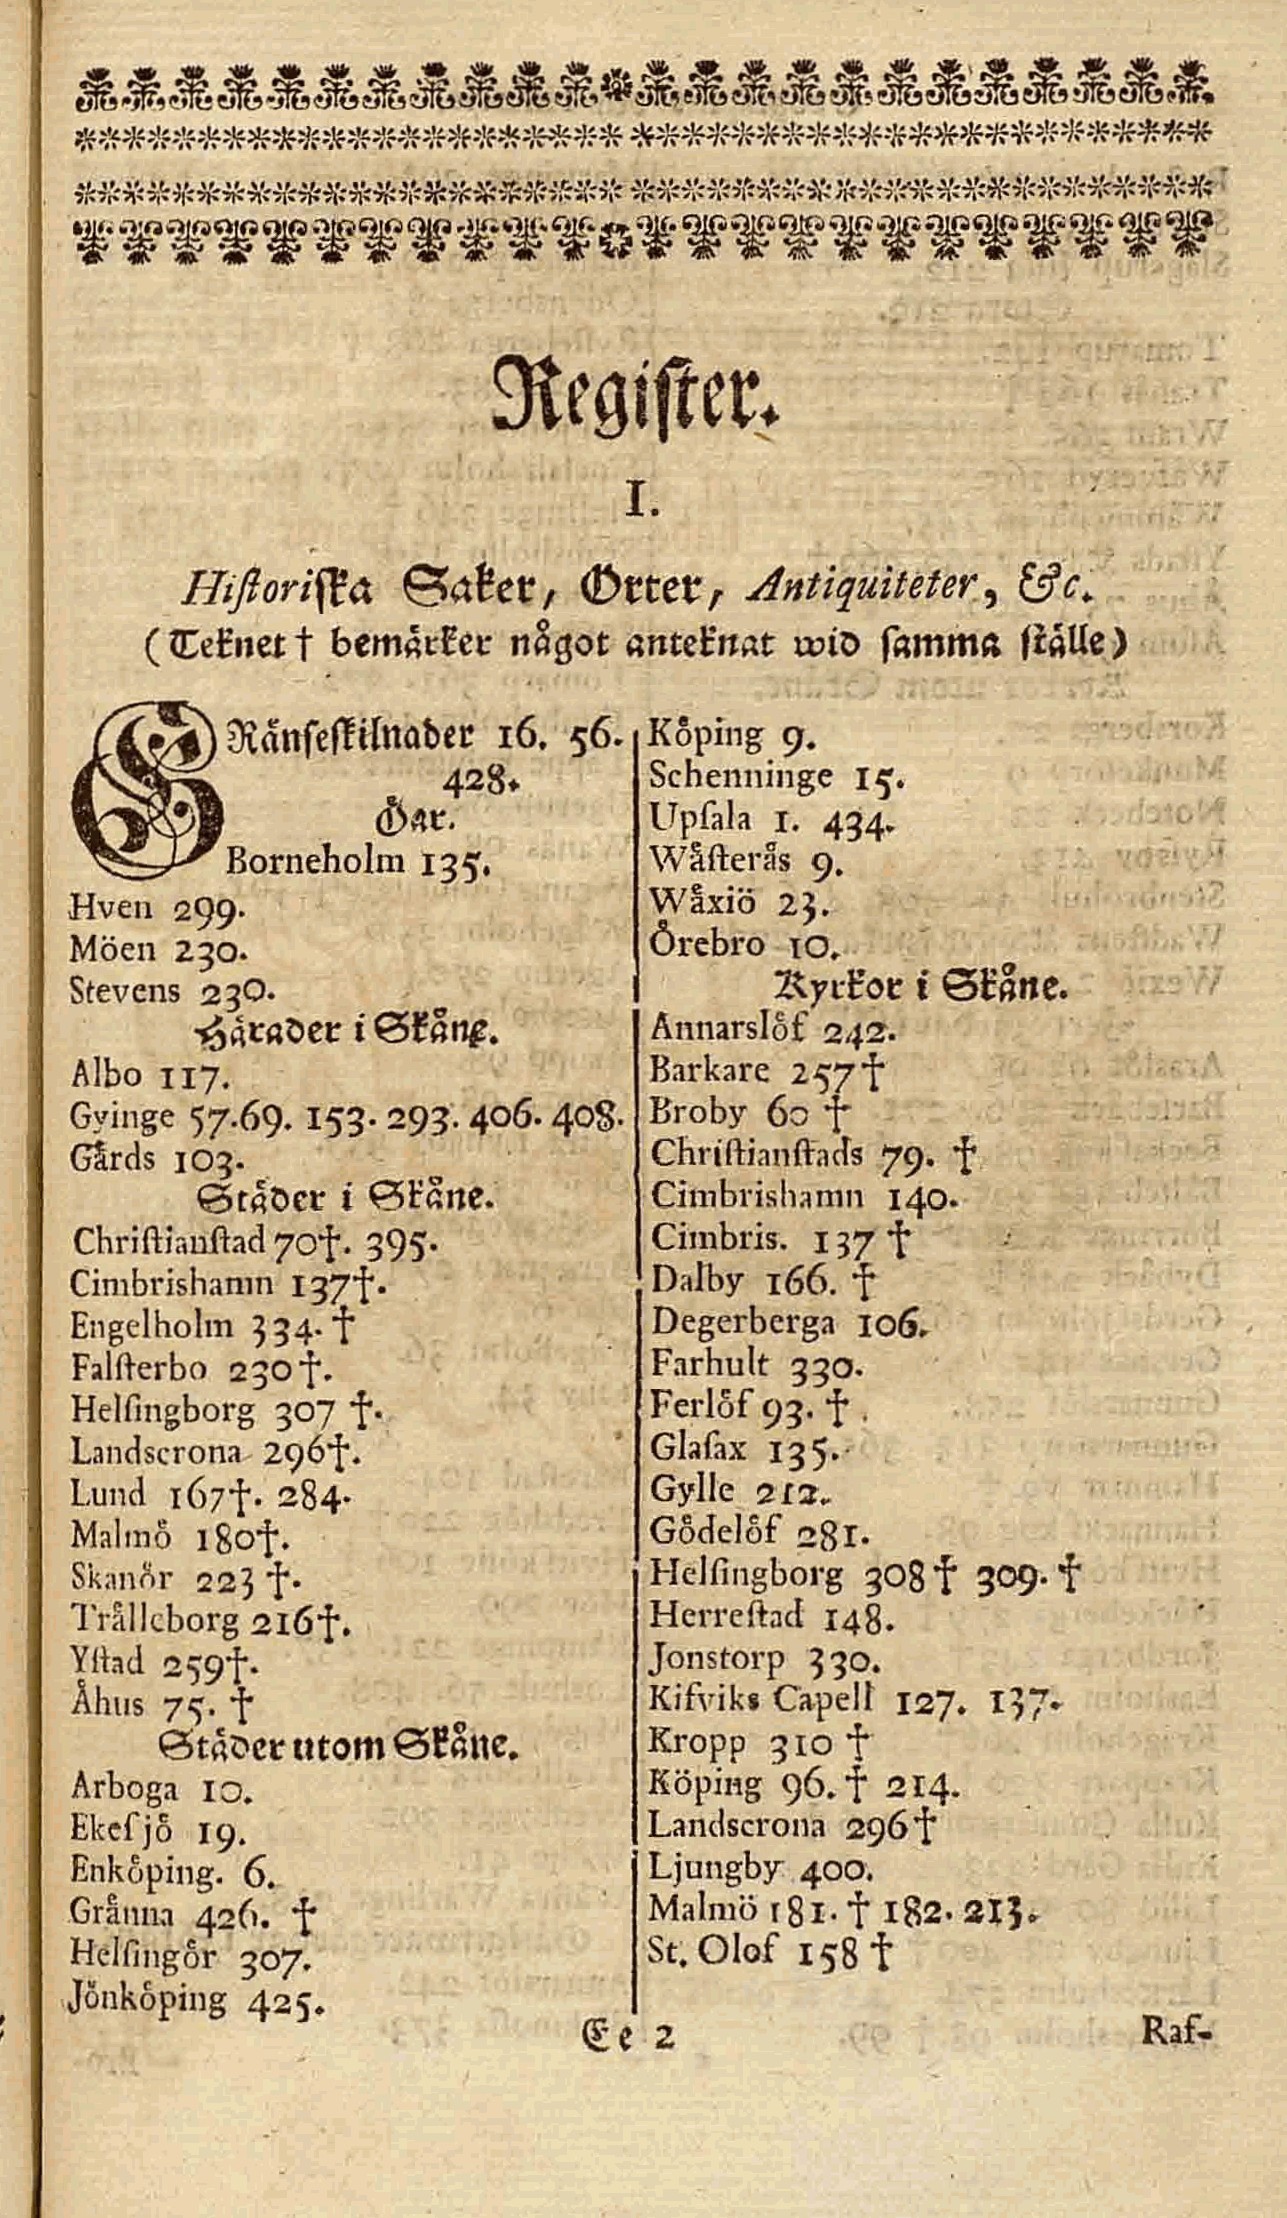 Register.
I.
Historiska Saker, Orter, Antiquiteter, &c.
(Teknet † bemärker något anteknat wid samma ställe)
GRänseskilnader 16. 56.
428.
Öar.
Borneholm 135.
Hven 299.
Möen 230.
Stevens 230.
Härader i Skåne.
Albo 117.
Gyinge 57.69. 153. 293. 406. 408.
Gärds 103.
Städer i Skåne.
Christianstad 70†. 395.
Cimbrishamn 137†.
Engelholm 334. †
Falsterbo 230†.
Helsingborg 307 †.
Landscrona 296†.
Lund 167†. 284.
Malmö 180†.
Skanör 223 †.
Trälleborg 216†.
Ystad 259†.
Åhus 75. †
Städer utom Skåne.
Arboga 10.
Ekesjö 19.
Enköping. 6.
Gränna 426. †
Helsingör 307.
Jönköping 425.
Köping 9.
Schenninge 15.
Upsala 1. 434.
Wästerås 9.
Wäxiö 23.
Örebro 10.
Kyrkor i Skåne.
Annarslöf 242.
Barkare 257†
Broby 60 †
Christianstads 79. †
Cimbrishamn 140.
Cimbris. 137 †
Dalby 166. †
Degerberga 106.
Farhult 330.
Ferlöf 93. †
Glasax 135.
Gylle 212.
Gödelöf 281.
Helsingborg 308† 309. †
Herrestad 148.
Jonstorp 330.
Kifviks Capell 127. 137.
Kropp 310 †
Köping 96. † 214.
Landscrona 296†
Ljungby 400.
Malmö 181. † 182. 213.
St. Olof 158 †
Ee 2
Raf-